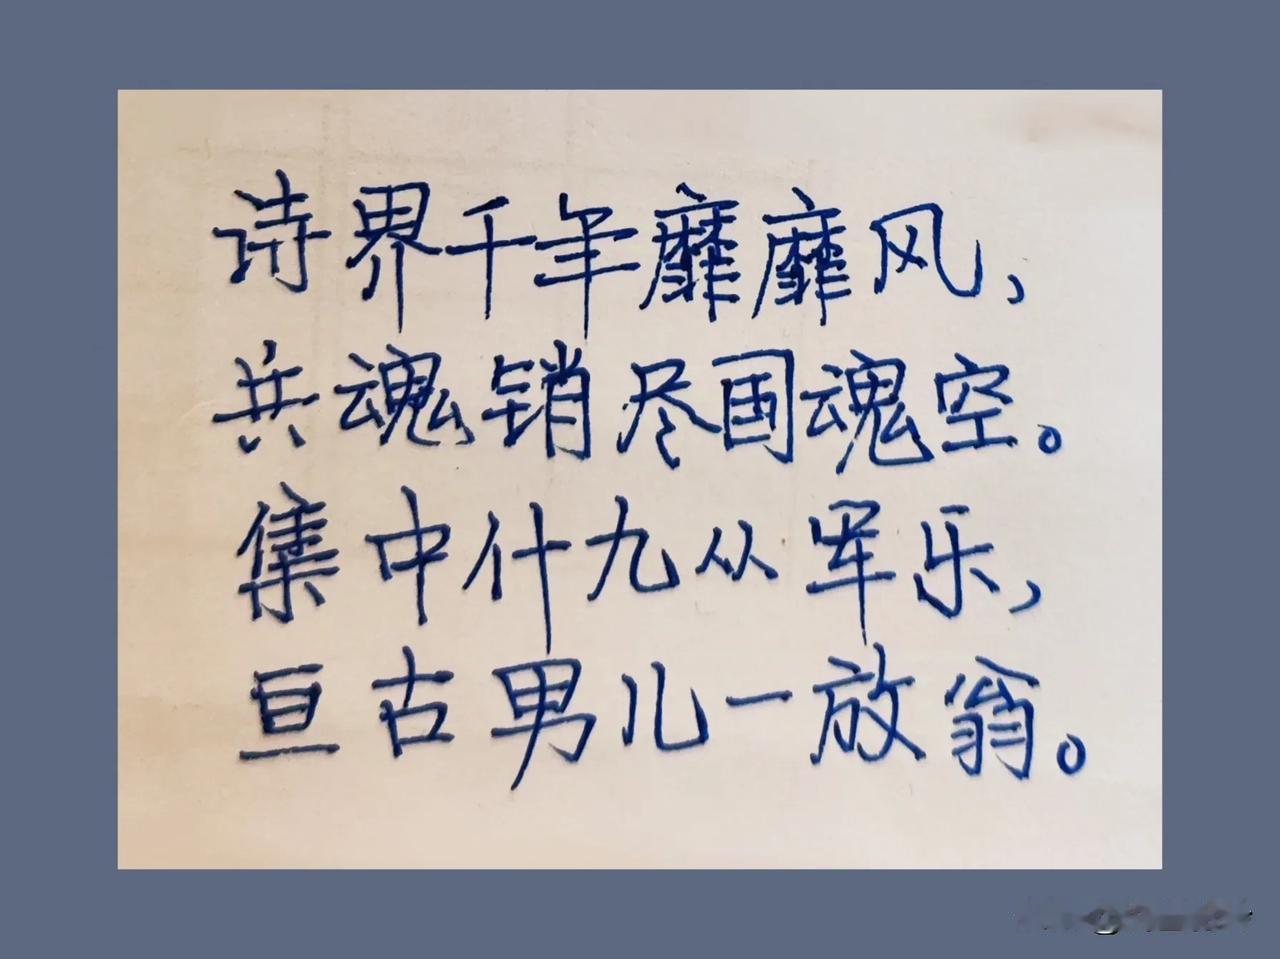 诗界千年靡靡风，
兵魂销尽国魂空。
集中什九从军乐，
亘古男儿一放翁。